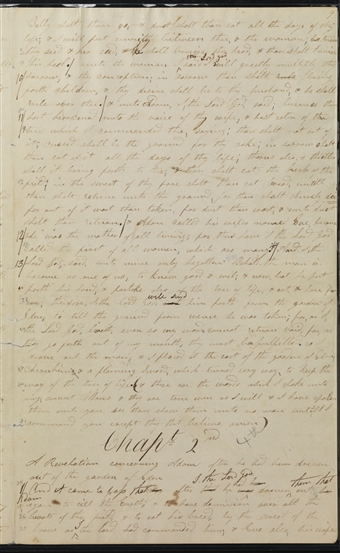 belly shalt thou go, & dust shalt thou eat all the days of thy
life; & I will put enmity between thee & the woman, between
thy seed & her seed, & he shall bruise thy head, & thou shalt bruise
his heel. unto the woman I the Lord God said will greatly multiply thy
sorrow, & thy conception; in sorrow thou shalt bring
forth children, & thy desire shall be to thy husband, & he shall
rule over thee. & unto Adam, I the Lord God, said; because thou
hast hearkened unto the voice of thy wife, & hast eaten of the
tree which I commanded thee, saying; thou shalt not eat of
it; cursed shall be the ground for thy sake; in sorrow shalt
thou eat of it all the days of thy life; thorns also, & thistles
shall it bring forth to thee, & thou shalt eat the herb of the
field; in the sweat of thy face shalt thou eat bread, until
thou shalt return unto the ground, for thou shalt surely die
for out of it wast thou taken, for dust thou wast, & unto dust
shalt thou return. & Adam called his wife's name Eve, because
she was the mother of all living; for thus have I the Lord God
called the first of all women, which are many. & I the
Lord God, said unto mine only begotten Behold the man is
become as one of us, to know good & evil; & now lest he put
forth his hand, & partake also of the tree of life, & eat & live for
ever, therefore, I the Lord God will send him forth from the garden of
Eden, to till the ground from whence he was taken; for, as I
the Lord God, liveth, even so my words cannot return void, for as
they go forth out of my mouth, they must be fulfilled. so I
drove out the man, & I placed at the east of the garden of Eden
cherubims & a flaming sword, which turned every way to keep the
way of the tree of life. (& these are the words which I spake unto
my servant Moses & they are true even as I will & I have spoken
them unto you see thou shew them unto no man until I
command you except they that believe amen)
Chapt. 2nd
A Revelation concerning Adam after he had been driven
out of the garden of Eden
And it came to pass that after I the Lord God had driven them out that
Adam began to till the earth, & to have dominion over all the
beasts of the field, & to eat his bread by the sweat of his
brow as I the Lord had commanded him, & Eve also his wife